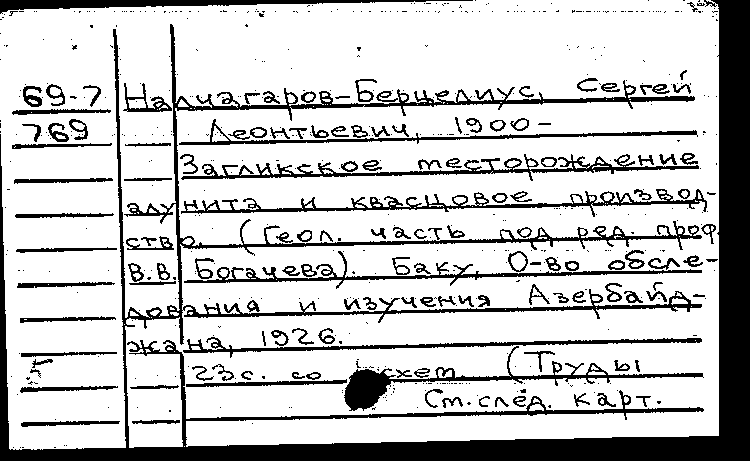 69-7 Налчагаров-Берцелиус, Сергей
769 Леонтьевич, 1900-
Загликское месторождение
алунита и квасцовое производ-
ство. (Геол. часть под ред. проф.
В.В. Богачева). Баку, О-во обсле-
дования и изучения Азербайд-
жана, 1926.
5 23 с. со схем. (Труды
См. след. карт.